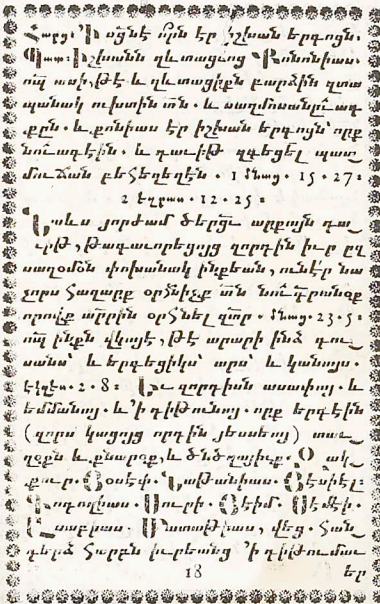 Հարց։ Ի սցնէ ո՞րն էր իշխան երգոցն.
Պատ։ Իշխանն ղևտացւոց Քոնոնիաս.
որպ ասի, թէ և ղևտացիքն բարձին զտա
պանակ ուխտին տն. և սաղմոսանըւագ
քըն. և քոնիաս էր իշխան երգոյն՝ որք
նուագէին. և դաւիթ զգեցել պատ
մուճան բեհեղեղէն. 1 մնաց. 15. 27։
2 եզրաս. 12. 25։
Նաևս յորժամ ծերցւ արքոյն դա
ւիթ, թագաւորեցոյց զորդին իւր ըզ
սաղօմօն փոխանակ ինքեան, ունէր նա
չորս հազարք օրհնիչք տն նուագրանօք
որովք ածրին օրհնել զտր. մնաց. 23. 5։
որպ ինքն վկայէ, թէ արարի ինձ գու
սանս՝ և երգեցիկս՝ արս՝ և կանայս.
էկլէս. 2. 8։ Եւ զորդիսն ասափայ. և
եմմանայ. և ՚ի դիթունայ. որք երգէին
(զորս կացոյց որդին յեսսեայ) տաւ
ղօքն և քնարօք, և ծնծղայիւք. Զակ
քուր. Յօսէփ. Նաթանիաս. Յեսիէլ։
Գոդողիաս. Սուրի. Յեիմ. Սեմեի.
Ասաբիաս. Մատաթիաս, վեց. հան
դերձ հարբն իւրեանց ՚ի դիթումաւ
18 եր